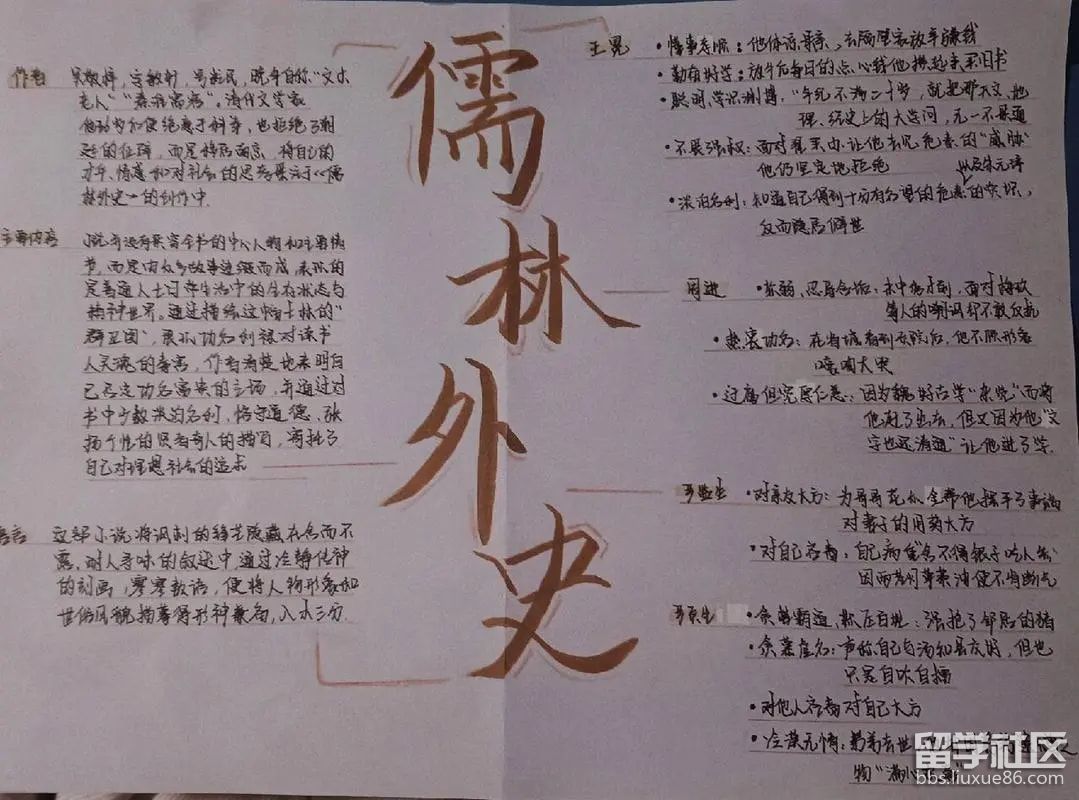 儒林外史
作者 吴敬梓，字敏轩，号粒民，晚年自称“文木
老人”“秦淮寓客”。清代文学家
他动步如便绝意于科举，也拒绝了朝
廷的征辟，而是移居南京，将自己的
才华、情感和对社会的思考贯注于《儒
林外史》的创作中
主要内容 小说并没有贯穿全书的中心人物和主要情
节，而是由众多故事连缀而成，表现的
是普通人士日常生活中的生存状态与
精神世界。通过描绘这幅士林的“
群丑图”，展示功名利禄对读书
人灵魂的毒害，作者清楚地表明自
己否定功名富贵的立场，并通过对
书中少数淡泊名利、恪守道德、张
扬个性的贤者奇人的描写，寄托了
自己对理想社会的追求
语言 这部小说将讽刺的锋芒隐藏在含而不
露、耐人寻味的叙述中，通过冷静传神
的刻画，寥寥数语，便将人物形象和
世俗风貌描摹得形神兼备，入木三分
王冕 •懂事孝顺：他体谅母亲，去隔壁家放牛赚钱
•勤奋好学：放牛后每日的点心钱他攒起来买旧书
•聪明，学识渊博：“年纪不满二十岁，就把那天文、地
理、经史上的大学问，无一不贯通
•不畏强权：面对翟买办让他去见危素的“威胁”
他仍坚定地拒绝
以及朱元璋
•淡泊名利：知道自己得到十方有名望的危素的赏识，
反而隐居避世
周进 •软弱、忍辱含垢：未中秀才前，面对梅玖
等人的嘲讽却不敢反抗
•热衷功名：在省城看到贡院后，他不顾形象
嚎啕大哭
•迂腐但宽厚仁慈：因为魏好古学“杂览”而将
他赶了出去，但又因为他“文
字也还清通”让他进了学.
严监生 •对亲友大方：为哥哥花钱，全帮他摆平了事端
对妻子的用药大方
•对自己吝啬：自己病重舍不得银子吃人参
因两茎灯草费油便不肯断气
严贡生 •仗势霸道，欺压百姓：强抢了邻居的猪
•贪慕虚名：声称自己与汤知县友好，但也
只是自吹自擂
•对他人吝啬对自己大方
•冷漠无情：弟弟去世
物“满心欢喜”
留学社区
bbs.liuxue86.com